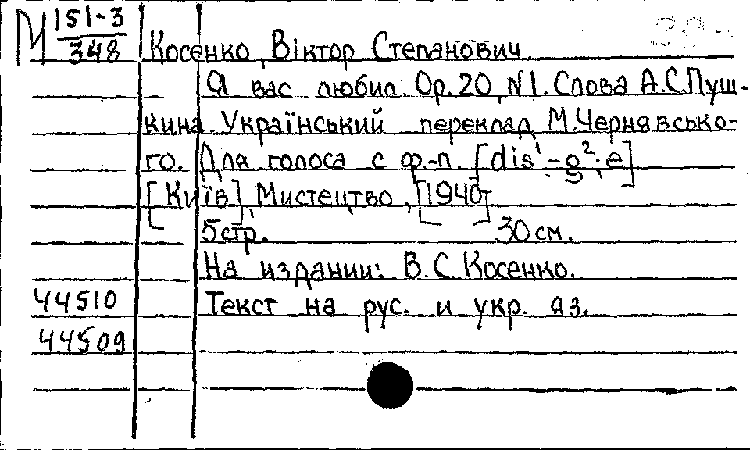 М 151-3
348
Косенко, Віктор Степанович
Я вас любил Op. 20, N1. Слова А.С. Пуш-
кина. Український переклад М. Чернявсько-
го. Для голоса с ф.-п. [dis¹-g²; e]
[Київ], Мистецтво, [1940]
5 стр. 30 см.
На издании: В. С. Косенко.
44510 Текст на рус. и укр. яз.
44509